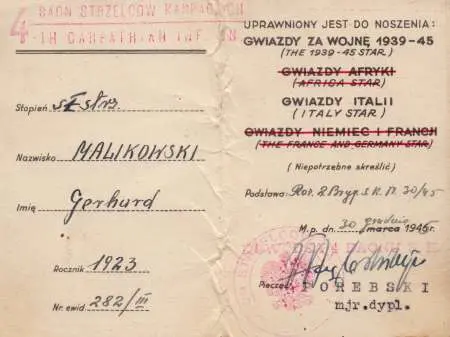 4 BAON STRZELCÓW KARPACKICH
4-TH CARPATHIAN INF. BN
Stopień st. strz.
Nazwisko MALIKOWSKI
Imię Gerhard
Rocznik 1923
Nr. ewid 282/III
UPRAWNIONY JEST DO NOSZENIA:
GWIAZDY ZA WOJNĘ 1939-45
(THE 1939-45 STAR.)
GWIAZDY AFRYKI
(AFRICA STAR)
GWIAZDY ITALII
(ITALY STAR)
GWIAZDY NIEMIEC I FRANCJI
(THE FRANCE AND GERMANY STAR)
(Niepotrzebne skreślić)
Podstawa: Roz. 2 Bryg. S.K. 30/45
M.p. dn. 30 grudnia marca 1945
Pieczęć
TOREBSKI
mjr.dypl.